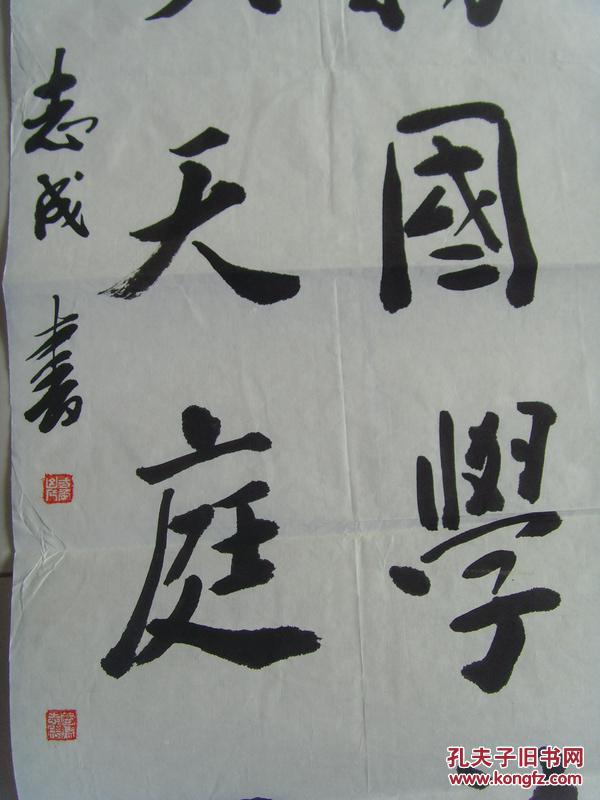 國學
天庭
志成書
孔夫子旧书网
www.kongfz.com